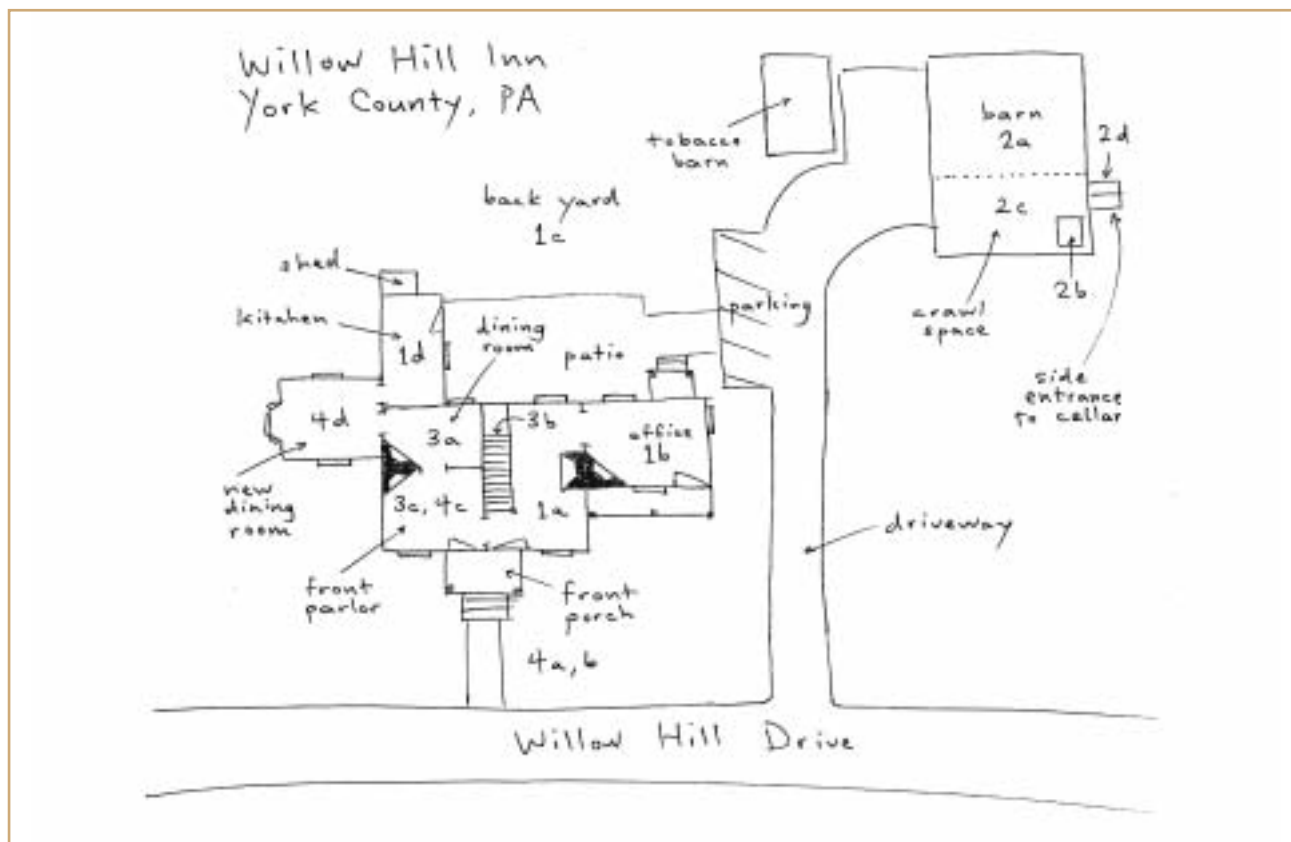 Willow Hill Inn
York County, PA
tobacco
barn
barn
2a
2d
2c
2b
crawl
space
side
entrance
to cellar
back yard
1c
shed
kitchen
1d
dining
room
patio
parking
4d
3a
3b
office
1b
new
dining
room
3c, 4c
1a
driveway
front
parlor
front
porch
4a, b
Willow Hill Drive